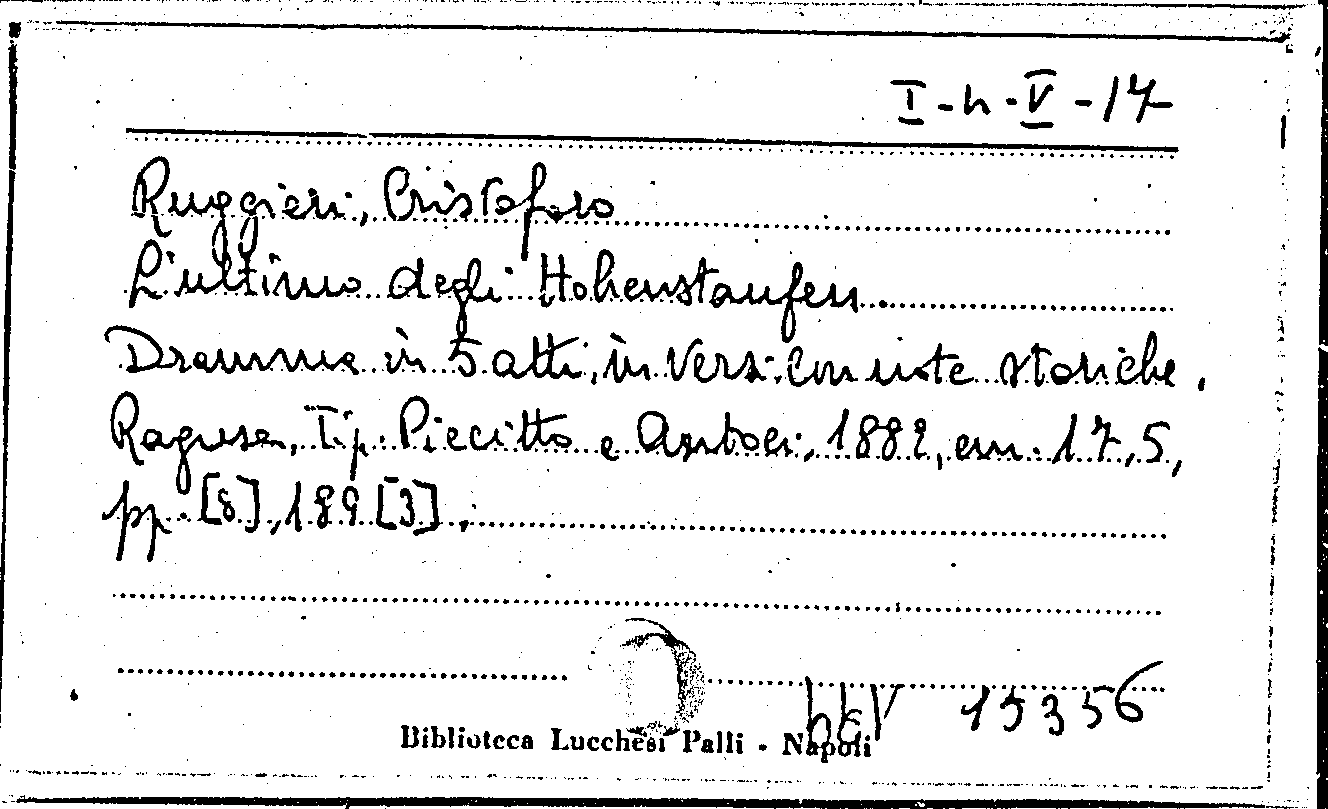 I-h-V-17
Ruggieri, Cristoforo
L'ultimo degli Hohenstaufen.
Dramma in 5 atti, in versi, con note storiche.
Ragusa, Tip. Piccitto e Antoci, 1882, cm. 17,5,
pp. [8], 189 [3].
15356
Biblioteca Lucchesi Palli - Napoli